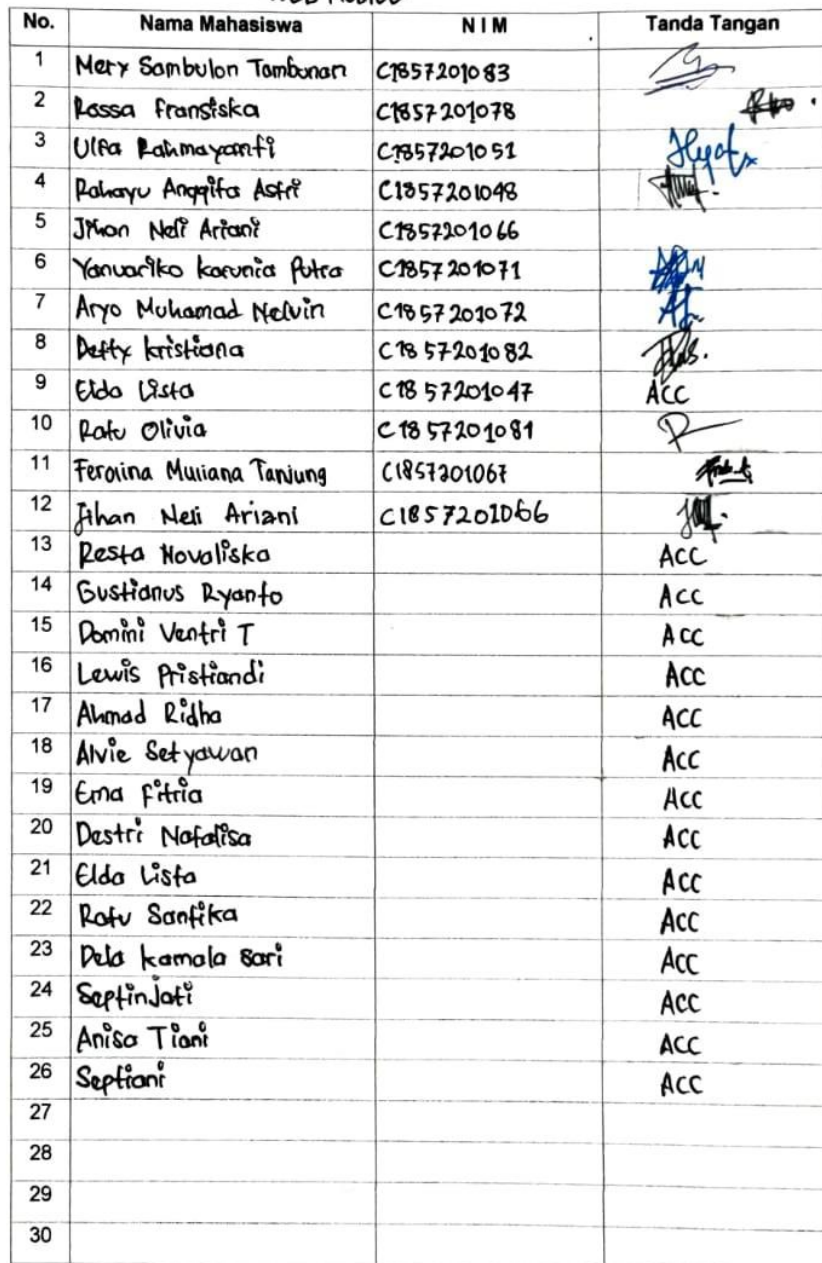 No. Nama Mahasiswa N I M Tanda Tangan
1 Mery Sambulon Tambunan C1857201083
2 Rossa Fransiska C1857201078
3 Ulfa Rahmayanti C1857201051
4 Rahayu Anggita Astri C1857201048
5 Jihan Neli Ariani C1857201066
6 Yanuariko karunia Putra C1857201071
7 Aryo Muhamad Nelvin C1857201072
8 Detty kristiana C1857201082
9 Elda Lista C1857201047 ACC
10 Ratu Olivia C1857201081
11 Ferolina Muliana Tanjung C1857201067
12 Jihan Neli Ariani C1857201066
13 Resta Novaliska ACC
14 Gustianus Ryanto ACC
15 Domini Ventri T ACC
16 Lewis Pristiandi ACC
17 Ahmad Ridha ACC
18 Alvie Setyawan ACC
19 Erna Fitria ACC
20 Destri Natalisa ACC
21 Elda Lista ACC
22 Ratu Santika ACC
23 Dela kamala sari ACC
24 Septinjati ACC
25 Anisa Tiani ACC
26 Septiani ACC
27
28
29
30